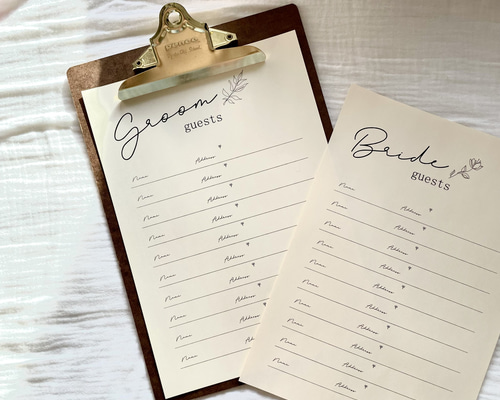 Groom
guests
Name Address
Name Address
Name Address
Name Address
Name Address
Name Address
Name Address
Name Address
Name Address
Name
Bride
guests
Name Address
Name Address
Name Address
Name Address
Name Address
Name Address
Name Address
Name Address
Name Address